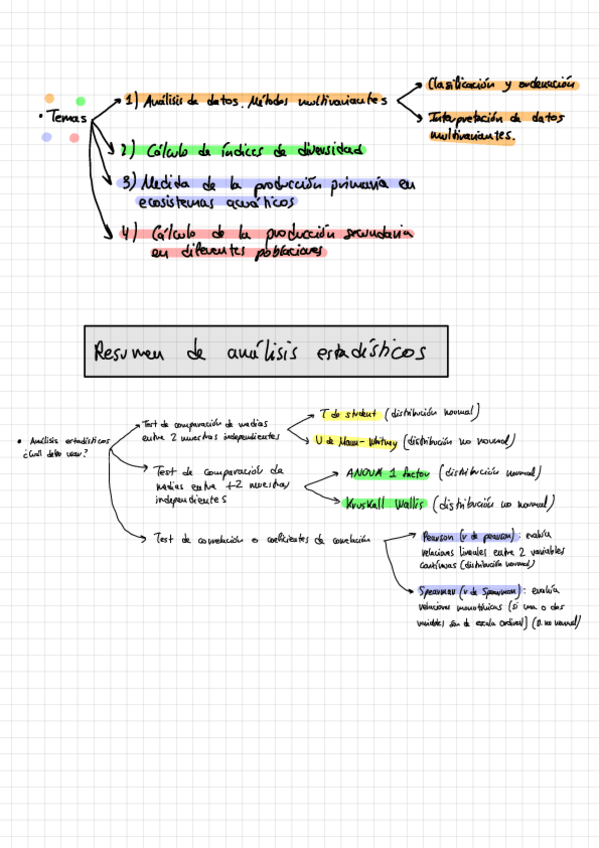 • Temas
1) Análisis de datos. Métodos multivariantes
Clasificación y ordenación
Interpretación de datos
multivariantes.
2) Cálculo de índices de diversidad
3) Medida de la producción primaria en
ecosistemas acuáticos
4) Cálculo de la producción secundaria
en diferentes poblaciones
Resumen de análisis estadísticos
• Análisis estadísticos
¿Cuál debo usar?
Test de comparación de medias
entre 2 muestras independientes
T de student (distribución normal)
U de Mann-Whitney (distribución no normal)
Test de comparación de
medias entre +2 muestras
independientes
ANOVA 1 factor (distribución normal)
Kruskall Wallis (distribución no normal)
Test de correlación o coeficientes de correlación
Pearson (r de pearson): evalúa
relaciones lineales entre 2 variables
continuas (distribución normal)
Spearman (r de Spearman): evalúa
relaciones monotónicas (si una o dos
variables son de escala ordinal) (D. no normal)